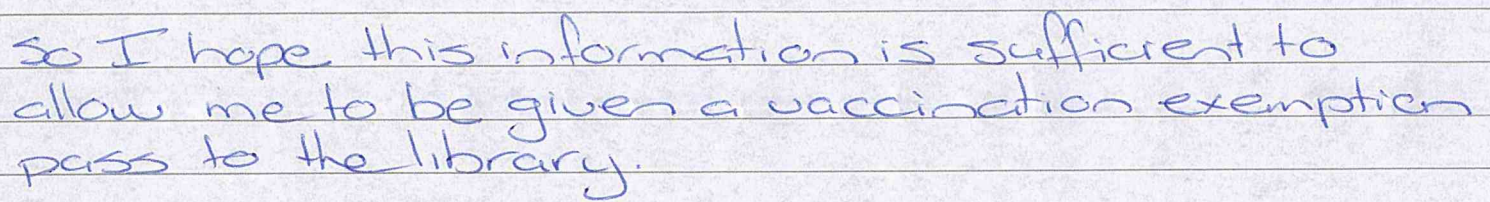 So I hope this information is sufficient to
allow me to be given a vaccination exemption
pass to the library.